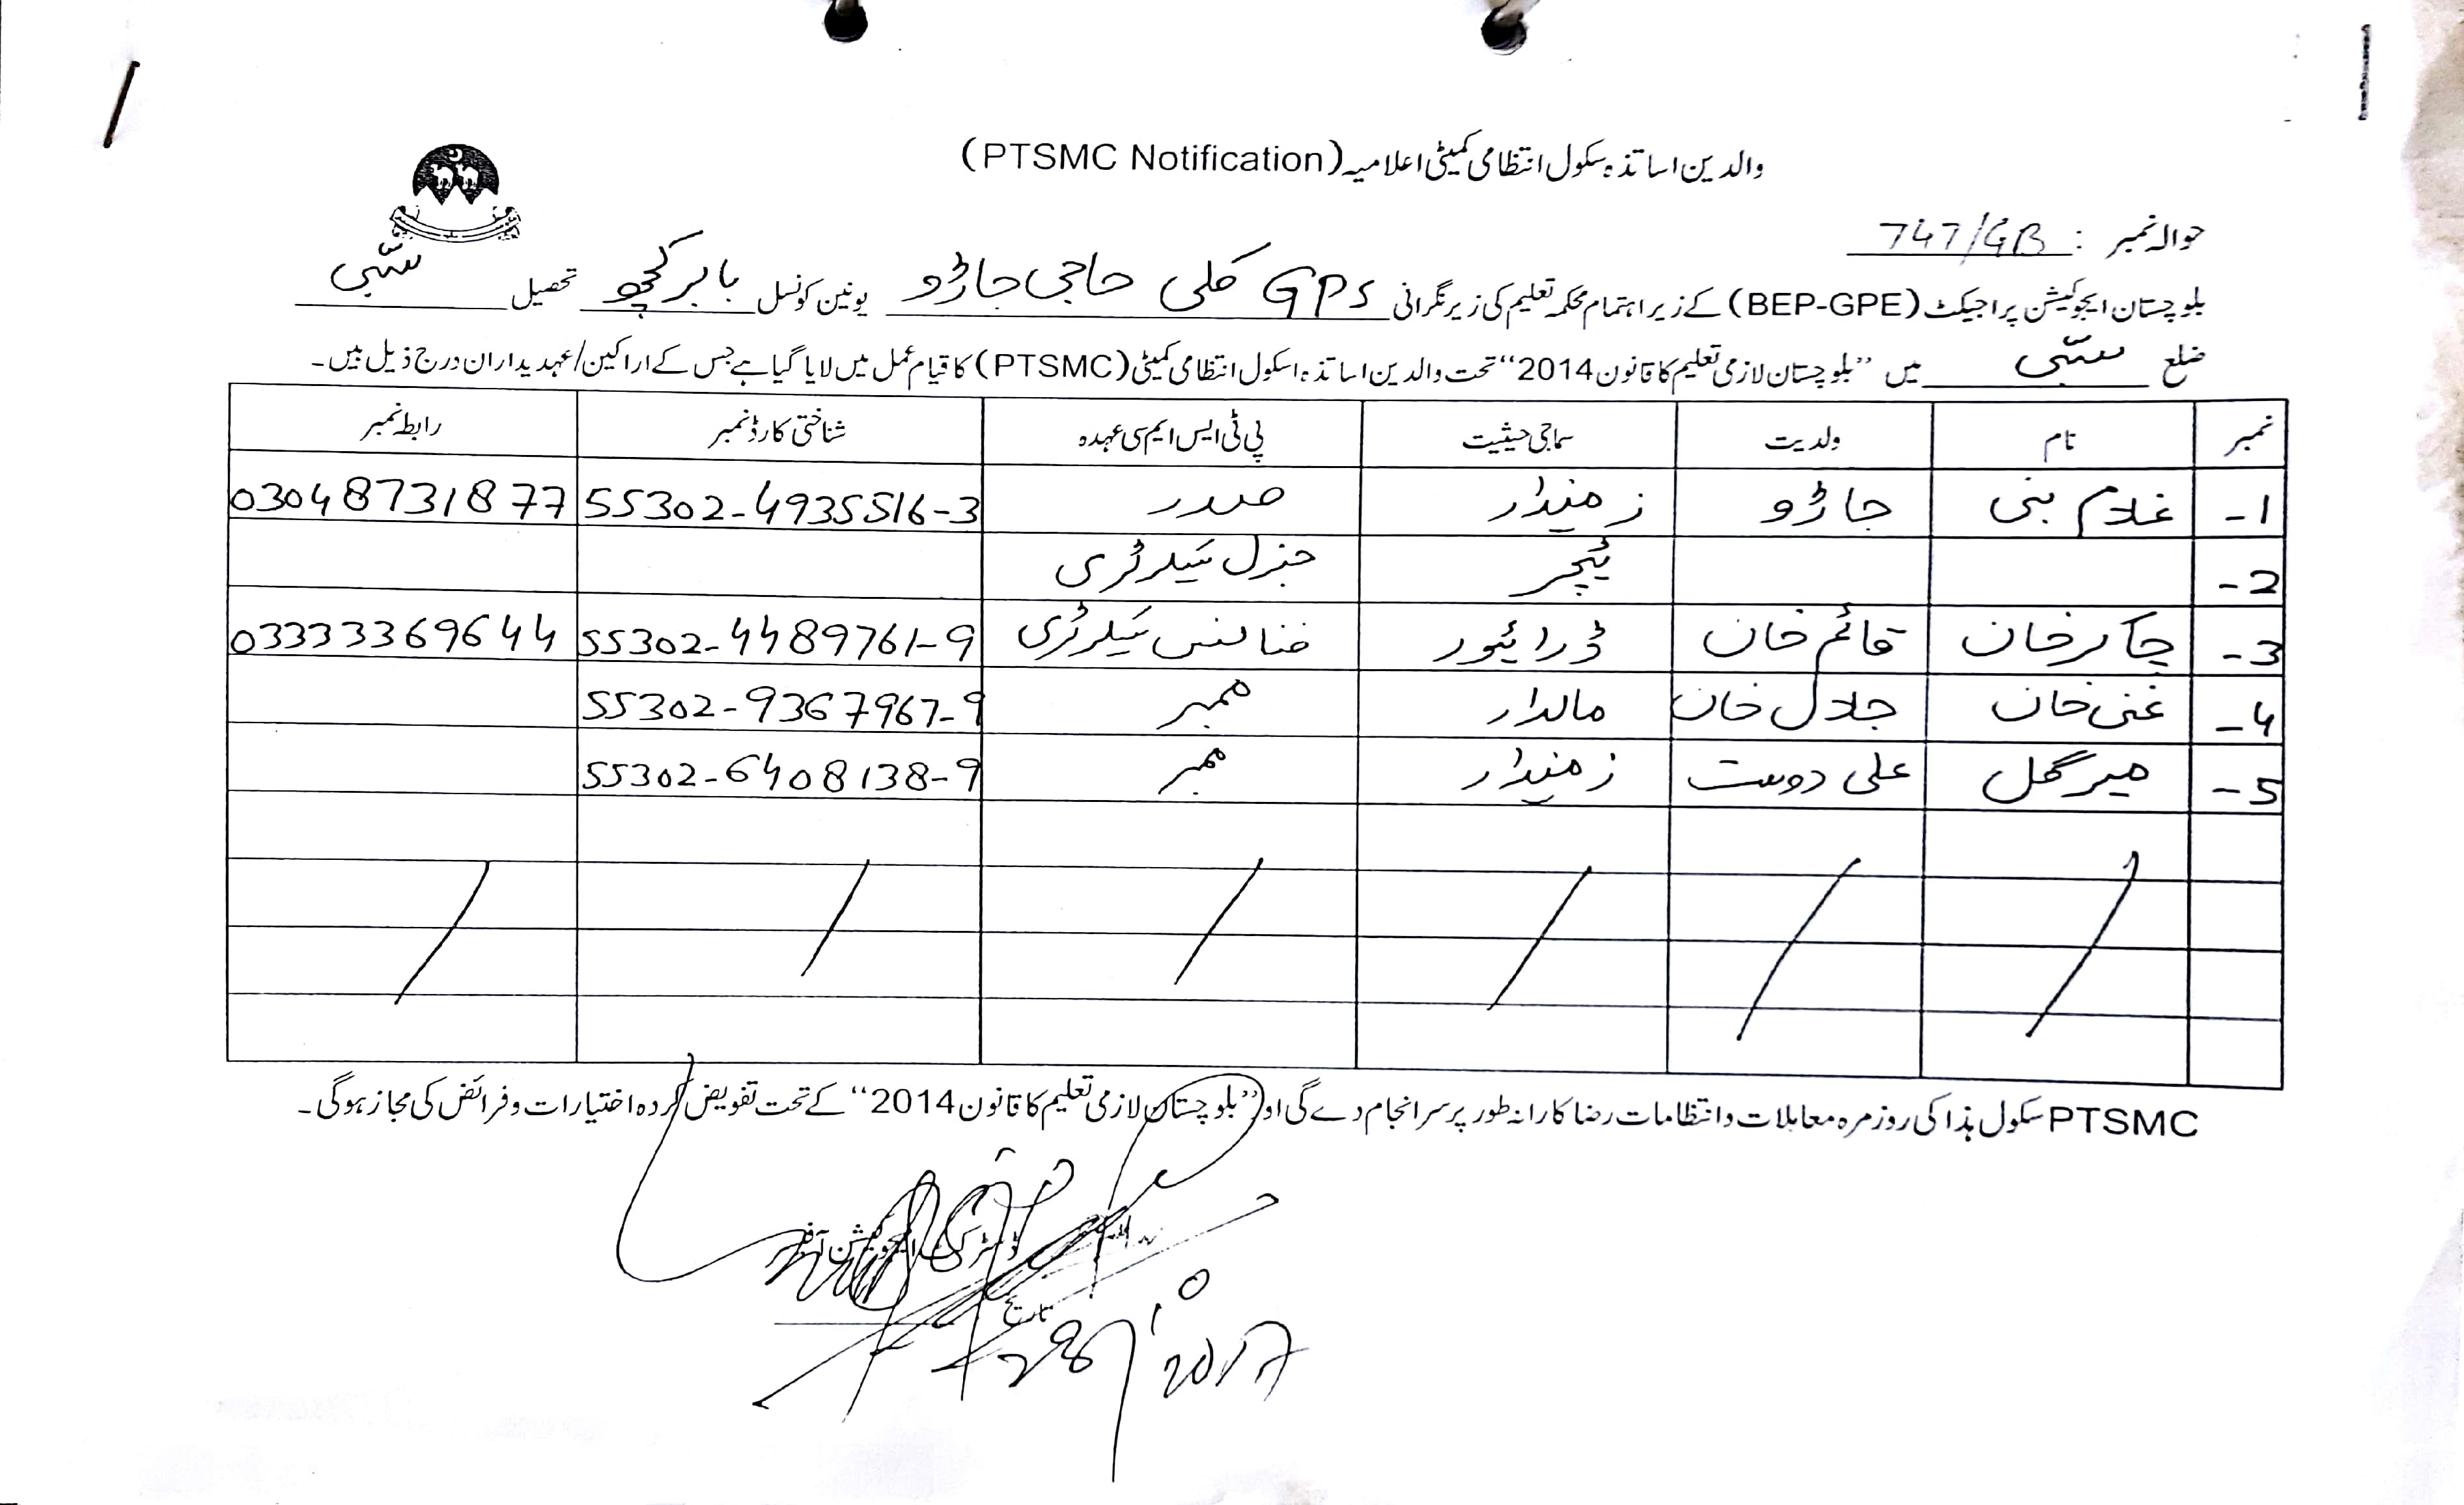 والدین اساتذہ سکول انتظامی کمیٹی اعلامیہ (PTSMC Notification)
حوالہ نمبر : 747/GB
بلوچستان ایجوکیشن پراجیکٹ (BEP-GPE) کے زیر اہتمام محکمہ تعلیم کی زیر نگرانی GPS کلی حاجی جاڑو یونین کونسل بابر کچھ تحصیل سبّی
ضلع سبّی میں ”بلوچستان لازمی تعلیم کا قانون 2014“ تحت والدین اساتذہ اسکول انتظامی کمیٹی (PTSMC) کا قیام عمل میں لایا گیا ہے جس کے اراکین/عہدیداران درج ذیل ہیں۔
نمبر نام ولدیت سماجی حیثیت پی ٹی ایس ایم سی عہدہ شناختی کارڈ نمبر رابطہ نمبر
1- غلام نبی جاڑو زمیندار صدر 55302-4935516-3 03048731877
2- ٹیچر جنرل سیکرٹری
3- چاکر خان قائم خان ڈرائیور فنانس سیکرٹری 55302-4489761-9 03333369644
4- غنی خان جلال خان مالدار ممبر 55302-9367967-9
5- میر گل علی دوست زمیندار ممبر 55302-6408138-9
PTSMC سکول ہذا کی روزمرہ معاملات و انتظامات رضا کارانہ طور پر سرانجام دے گی اور ”بلوچستان لازمی تعلیم کا قانون 2014“ کے تحت تفویض کردہ اختیارات و فرائض کی مجاز ہوگی۔
ڈسٹرکٹ ایجوکیشن آفیسر
تاریخ
2017